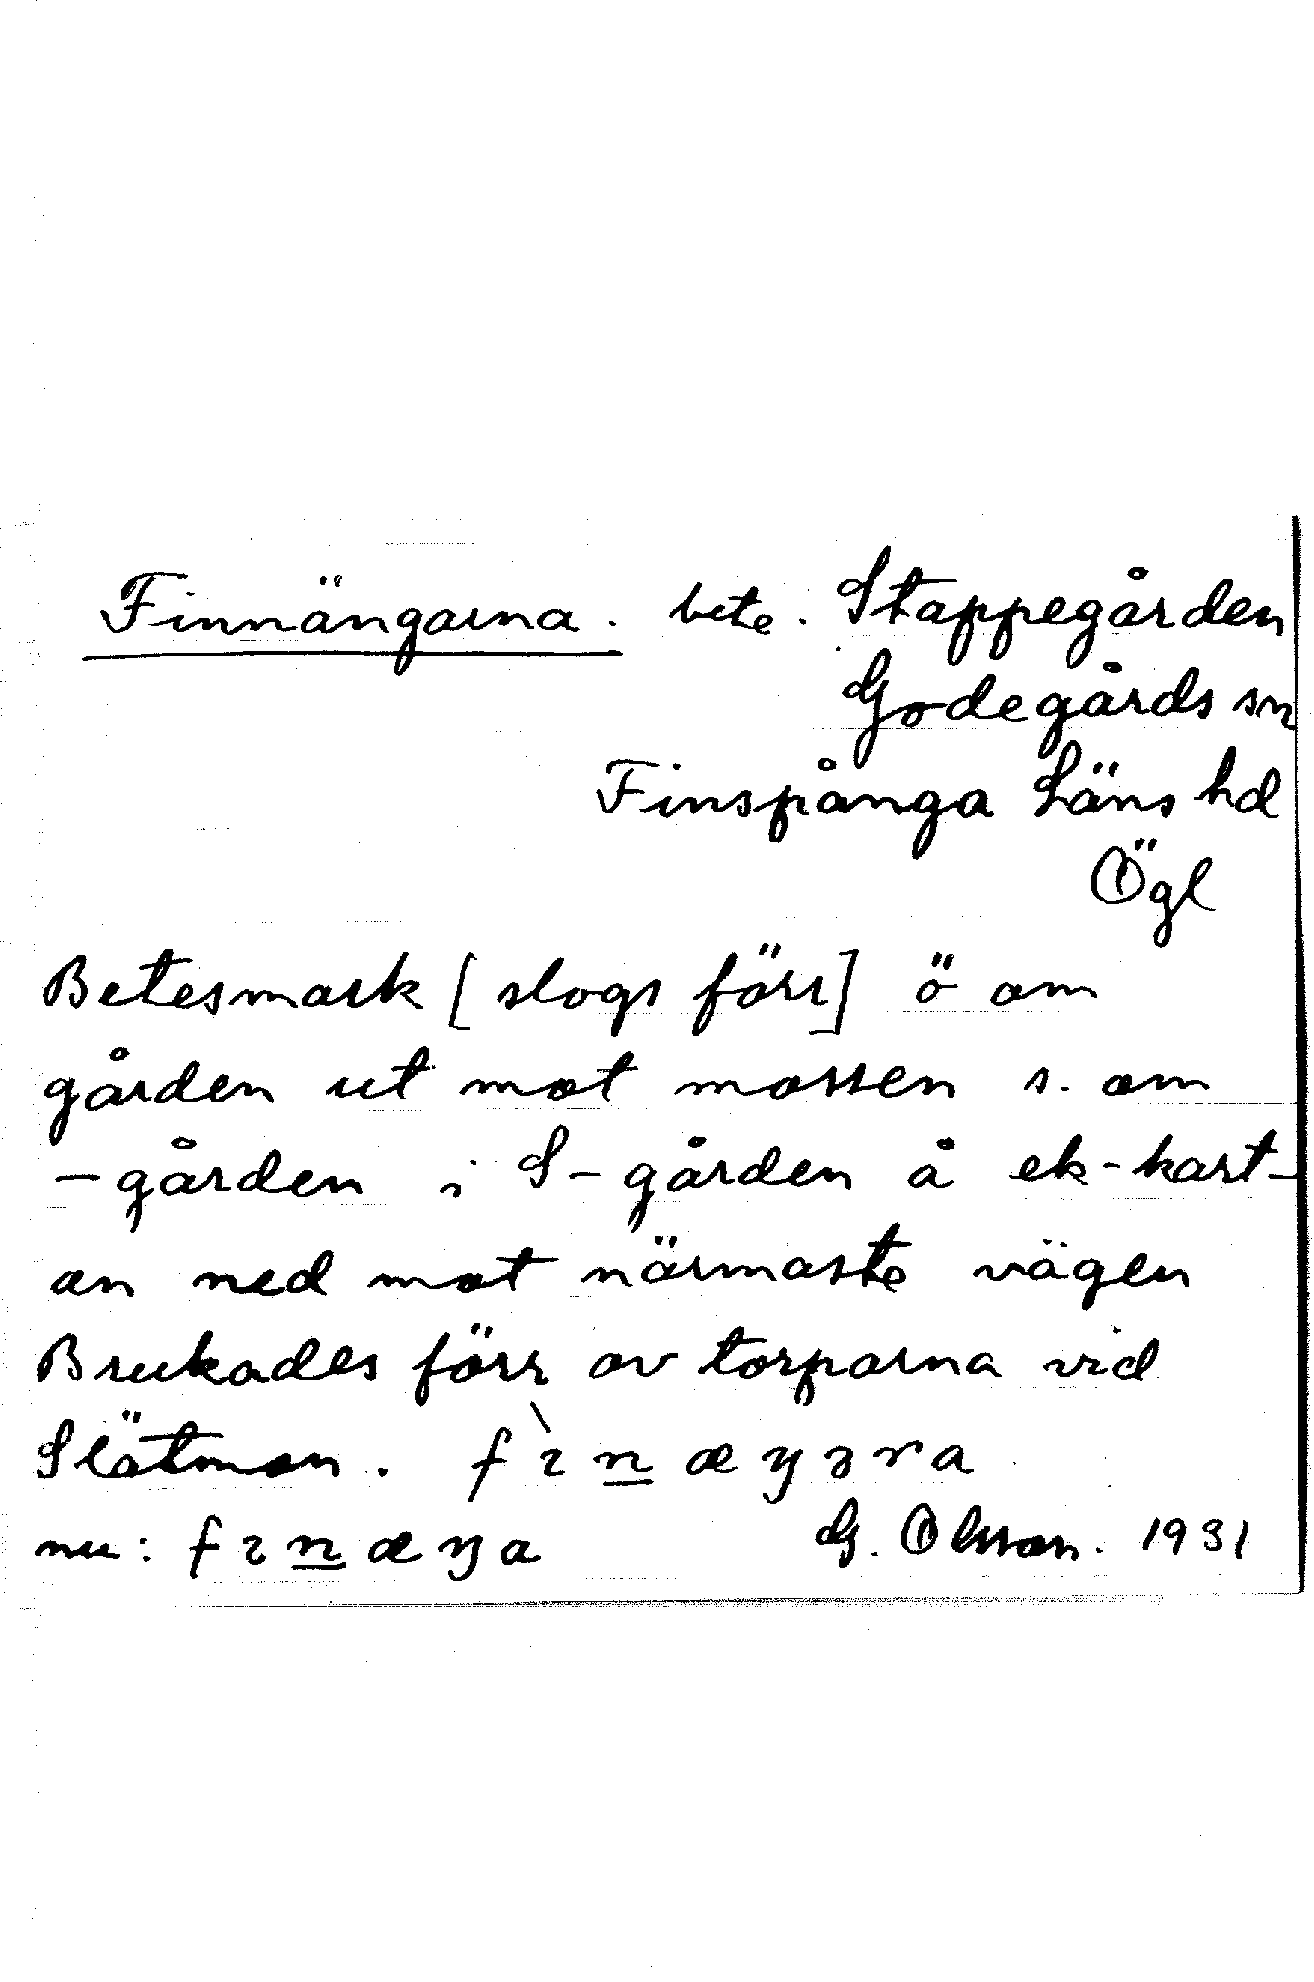 Finnängarna. bete. Stappegården
Godegårds sn
Finspånga Läns hd
Ögl
Betesmark [slogs förr] ö om
gården ut mot mossen s. om
-gården i S-gården å ek-kart-
an ned mot närmaste vägen
Brukades förr av torparna vid
Slätmon. fìn̲æŋəra
nu: fɩn̲æŋa G. Olsson. 1931